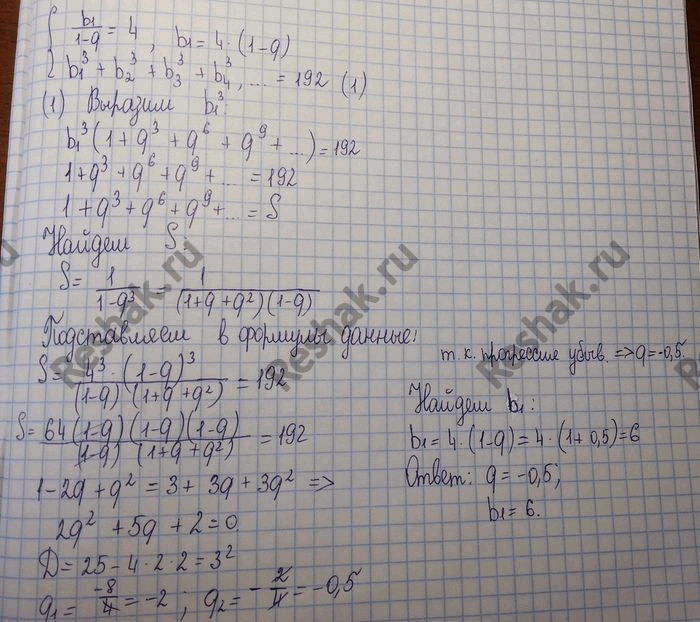 { b₁/(1-q) = 4 , b₁ = 4·(1-q)
b₁³ + b₂³ + b₃³ + b₄³, ... = 192 (1)
(1) Выразим b₁³:
b₁³(1+q³+q⁶+q⁹+...) = 192
1+q³+q⁶+q⁹+... = 192
1+q³+q⁶+q⁹+... = S
Найдем S:
S = 1/(1-q³) = 1/((1+q+q²)(1-q))
Подставляем в формулы данные:
S = 4³·(1-q)³/((1-q)(1+q+q²)) = 192
S = 64(1-q)(1-q)(1-q)/((1-q)(1+q+q²)) = 192
1-2q+q² = 3+3q+3q² =>
2q²+5q+2=0
D = 25-4·2·2 = 3²
q₁ = -8/4 = -2 ; q₂ = -2/4 = -0,5
т.к. прогрессия убыв. => q=-0,5.
Найдем b₁:
b₁ = 4·(1-q) = 4·(1+0,5) = 6
Ответ: q = -0,5;
b₁ = 6.
Reshak.ru
Reshak.ru
Reshak.ru
Reshak.ru